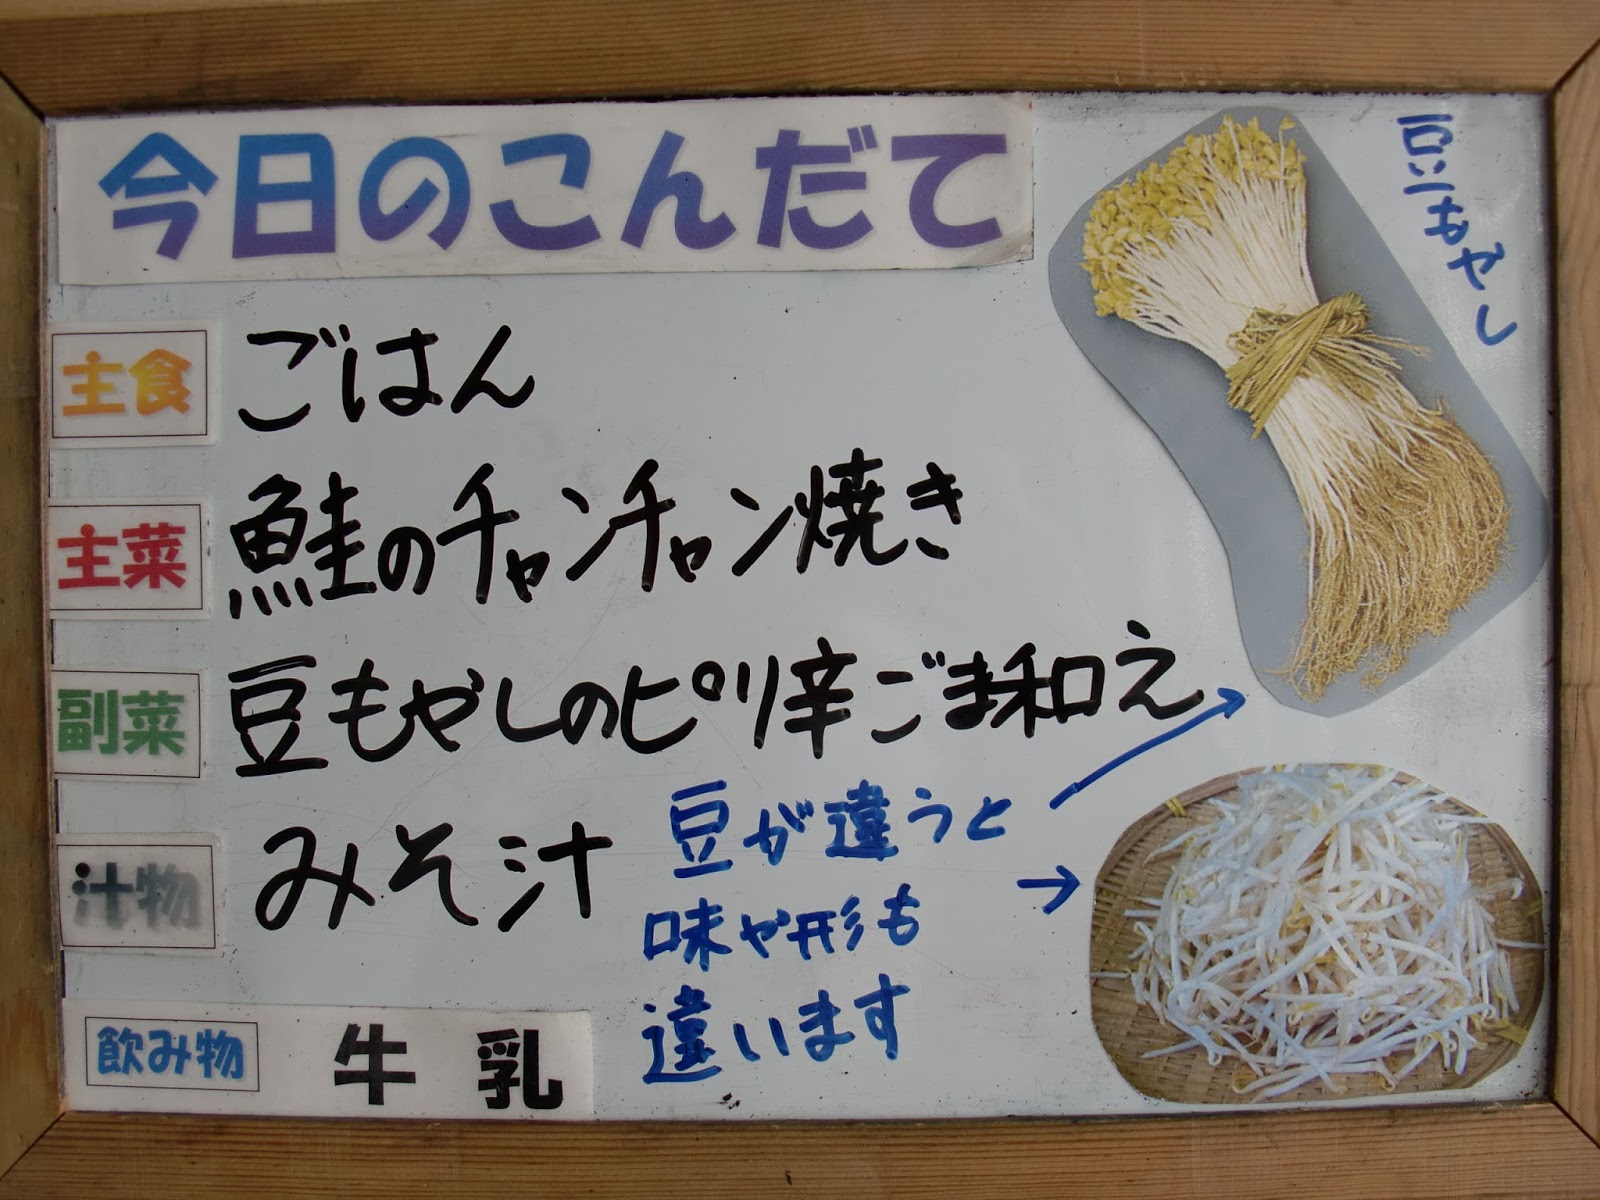 今日のこんだて
豆もやし
主食 ごはん
主菜 鮭のチャンチャン焼き
副菜 豆もやしのピリ辛ごま和え
汁物 みそ汁
豆が違うと
味や形も
違います
飲み物 牛乳